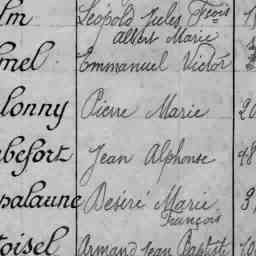 lm Léopold Jules Frois
Albert Marie
mel Emmanuel Victor
lonny Pierre Marie 20
befort Jean Alphonse 48
halaune Désiré Marie 3
François
oisel Armand Jean Baptiste 10